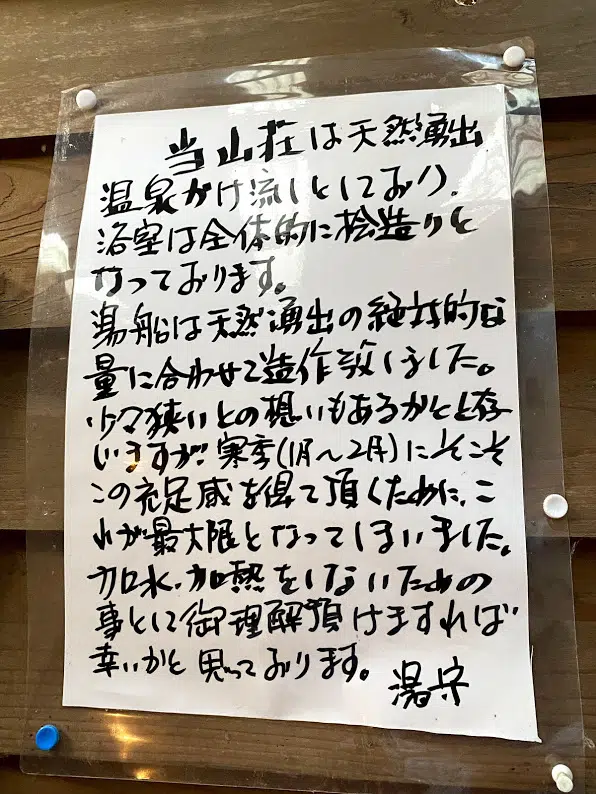 当山荘は天然湧出
温泉かけ流しとしており、
浴室は全体的に桧造りと
なっております。
湯船は天然湧出の絶対的な
量に合わせて造作致しました。
少々狭いとの想いもあるかとと存
いますが、寒季(1月～2月)にそこそ
この充足感を得て頂くために、こ
れが最大限となってしまいました。
加水、加熱をしないための
事として御理解頂けますれば
幸いかと思っております。
湯守